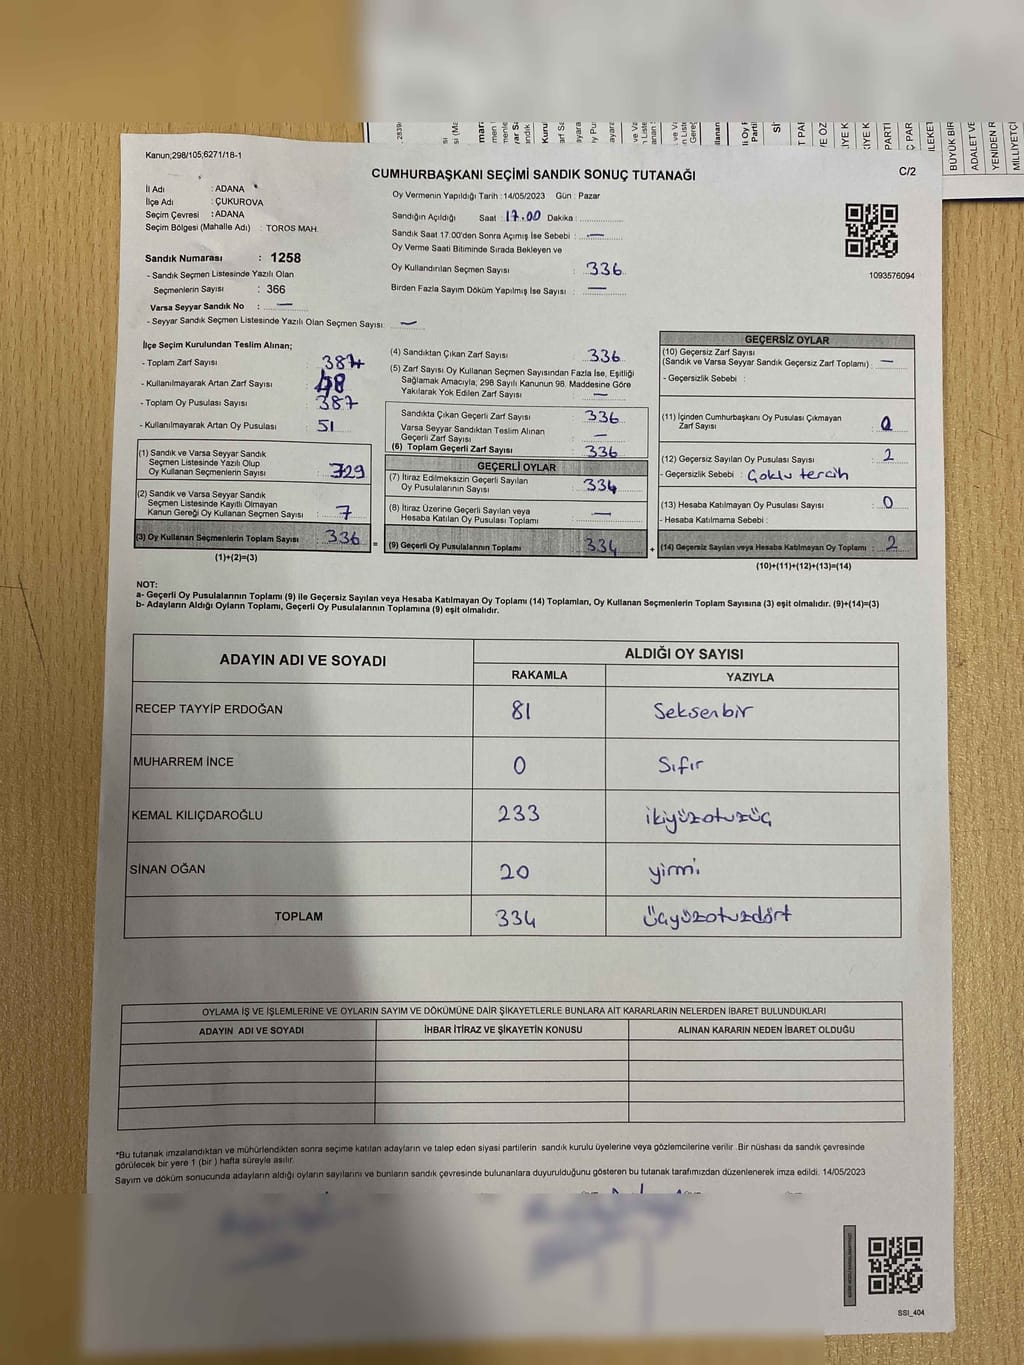 Kanun;298/105,6271/18-1
CUMHURBAŞKANI SEÇİMİ SANDIK SONUÇ TUTANAĞI
C/2
İl Adı : ADANA
İlçe Adı : ÇUKUROVA
Seçim Çevresi : ADANA
Seçim Bölgesi (Mahalle Adı) : TOROS MAH.
Sandık Numarası : 1258
- Sandık Seçmen Listesinde Yazılı Olan
Seçmenlerin Sayısı : 366
Varsa Seyyar Sandık No : —
- Seyyar Sandık Seçmen Listesinde Yazılı Olan Seçmen Sayısı: —
Oy Vermenin Yapıldığı Tarih : 14/05/2023 Gün : Pazar
Sandığın Açıldığı Saat : 17.00 Dakika :
Sandık Saat 17:00'den Sonra Açımış İse Sebebi : —
Oy Verme Saati Bitiminde Sırada Bekleyen ve
Oy Kullandırılan Seçmen Sayısı : 336
Birden Fazla Sayım Döküm Yapılmış İse Sayısı : —
1093576094
İlçe Seçim Kurulundan Teslim Alınan;
- Toplam Zarf Sayısı : 387
- Kullanılmayarak Artan Zarf Sayısı : 48
- Toplam Oy Pusulası Sayısı : 387
- Kullanılmayarak Artan Oy Pusulası : 51
(1) Sandık ve Varsa Seyyar Sandık
Seçmen Listesinde Yazılı Olup
Oy Kullanan Seçmenlerin Sayısı : 329
(2) Sandık ve Varsa Seyyar Sandık
Seçmen Listesinde Kayıtlı Olmayan
Kanun Gereği Oy Kullanan Seçmen Sayısı : 7
(3) Oy Kullanan Seçmenlerin Toplam Sayısı : 336
(1)+(2)=(3)
(4) Sandıktan Çıkan Zarf Sayısı : 336
(5) Zarf Sayısı Oy Kullanan Seçmen Sayısından Fazla İse, Eşitliği
Sağlamak Amacıyla; 298 Sayılı Kanunun 98. Maddesine Göre
Yakılarak Yok Edilen Zarf Sayısı : —
Sandıkta Çıkan Geçerli Zarf Sayısı : 336
Varsa Seyyar Sandıktan Teslim Alınan
Geçerli Zarf Sayısı : —
(6) Toplam Geçerli Zarf Sayısı : 336
GEÇERLİ OYLAR
(7) İtiraz Edilmeksizin Geçerli Sayılan
Oy Pusulalarının Sayısı : 334
(8) İtiraz Üzerine Geçerli Sayılan veya
Hesaba Katılan Oy Pusulası Toplamı : —
= (9) Geçerli Oy Pusulalarının Toplamı : 334
GEÇERSİZ OYLAR
(10) Geçersiz Zarf Sayısı
(Sandık ve Varsa Seyyar Sandık Geçersiz Zarf Toplamı) : —
- Geçersizlik Sebebi :
(11) İçinden Cumhurbaşkanı Oy Pusulası Çıkmayan
Zarf Sayısı : 0
(12) Geçersiz Sayılan Oy Pusulası Sayısı : 2
- Geçersizlik Sebebi : Çoklu tercih
(13) Hesaba Katılmayan Oy Pusulası Sayısı : 0
- Hesaba Katılmama Sebebi :
+ (14) Geçersiz Sayılan veya Hesaba Katılmayan Oy Toplamı : 2
(10)+(11)+(12)+(13)=(14)
NOT:
a- Geçerli Oy Pusulalarının Toplamı (9) ile Geçersiz Sayılan veya Hesaba Katılmayan Oy Toplamı (14) Toplamları, Oy Kullanan Seçmenlerin Toplam Sayısına (3) eşit olmalıdır. (9)+(14)=(3)
b- Adayların Aldığı Oyların Toplamı, Geçerli Oy Pusulalarının Toplamına (9) eşit olmalıdır.
ADAYIN ADI VE SOYADI
ALDIĞI OY SAYISI
RAKAMLA YAZIYLA
RECEP TAYYİP ERDOĞAN 81 Seksenbir
MUHARREM İNCE 0 Sıfır
KEMAL KILIÇDAROĞLU 233 ikiyüzotuzüç
SİNAN OĞAN 20 yirmi
TOPLAM 334 üçyüzotuzdört
OYLAMA İŞ VE İŞLEMLERİNE VE OYLARIN SAYIM VE DÖKÜMÜNE DAİR ŞİKAYETLERLE BUNLARA AİT KARARLARIN NELERDEN İBARET BULUNDUKLARI
ADAYIN ADI VE SOYADI İHBAR İTİRAZ VE ŞİKAYETİN KONUSU ALINAN KARARIN NEDEN İBARET OLDUĞU
*Bu tutanak imzalandıktan ve mühürlendikten sonra seçime katılan adayların ve talep eden siyasi partilerin sandık kurulu üyelerine veya gözlemcilerine verilir .Bir nüshası da sandık çevresinde
görülecek bir yere 1 (bir ) hafta süreyle asılır.
Sayım ve döküm sonucunda adayların aldığı oyların sayılarını ve bunların sandık çevresinde bulunanlara duyurulduğunu gösteren bu tutanak tarafımızdan düzenlenerek imza edildi. 14/05/2023
SSI_404
BÜYÜK BİR
ADALET VE
YENİDEN R
MİLLİYETÇİ